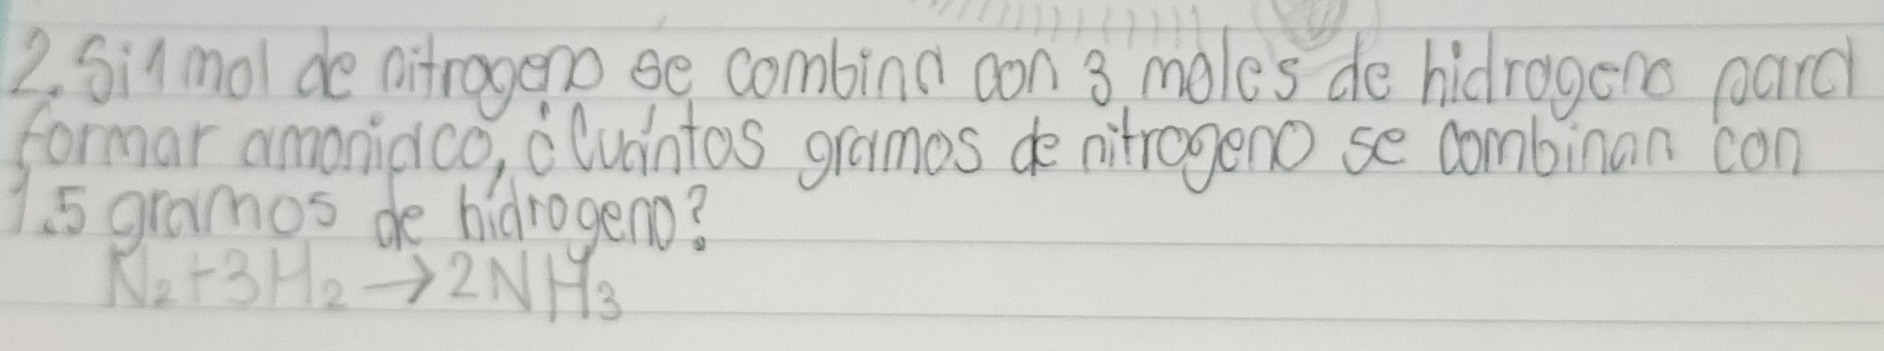 2. Si 1 mol de nitrogeno se combina con 3 moles de hidrogeno para
formar amoniaco, ¿Cuántos gramos de nitrogeno se combinan con
1.5 gramos de hidrogeno?
N₂+3H₂→2NH₃